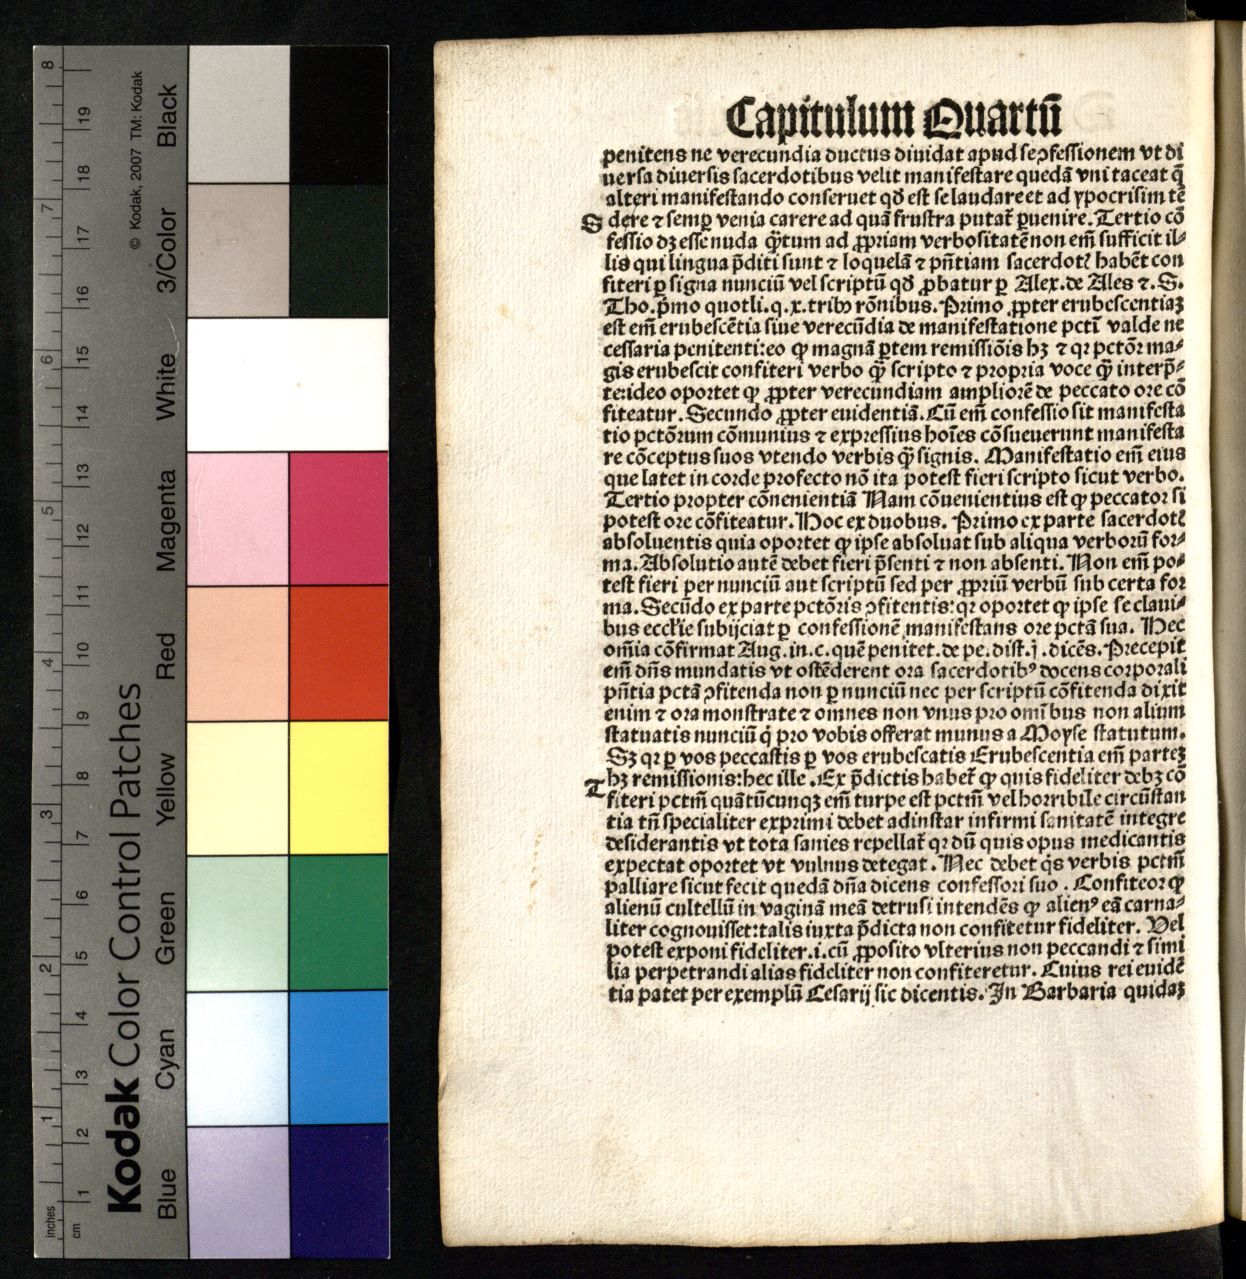 Capitulum Quartū
penitens ne verecundia ductus diuidat apud se ↄfessionem vt di
uersa diuersis sacerdotibus velit manifestare quedā vni taceat q̄
alteri manifestando conseruet qđ est se laudare et ad ypocrisim tē
S dere ⁊ semꝑ venia carere ad quā frustra putat᷑ ꝑuenire. Tertio cō
fessio dꝫ esse nuda q̄tum ad ꝓpriam verbositatē non em̄ sufficit il⸗
lis qui lingua p̄diti sunt ⁊ loquelā ⁊ pn̄tiam sacerdotꝭ habēt con
fiteri ꝑ signa nunciū vel scriptū qđ ꝓbatur ꝑ Alex. de Ales ⁊. S.
Tho. p̄mo quotli. q. x. tribꝰ rōnibus. Primo ꝓpter erubescentiaꝫ
est em̄ erubescētia siue verecūdia de manifestatione pctī valde ne
cessaria penitenti: eo ꝙ magnā ꝑtem remissiōis hꝫ ⁊ qꝛ pctōꝛ ma⸗
gis erubescit confiteri verbo q̄ꝫ scripto ⁊ propria voce q̄ꝫ interp̄⸗
te: ideo oportet ꝙ ꝓpter verecundiam ampliorē de peccato ore cō
fiteatur. Secundo ꝓpter euidentiā. Cū em̄ confessio sit manifesta
tio pctōrum cōmunius ⁊ expressius hoīes cōsueuerunt manifesta
re cōceptus suos vtendo verbis q̄ꝫ signis. Manifestatio em̄ eius
que latet in corde profecto nō ita potest fieri scripto sicut verbo.
Tertio propter cōnenientiā Nam cōuenientius est ꝙ peccator si
potest ore cōfiteatur. Hoc ex duobus. Primo ex parte sacerdotꝭ
absoluentis quia oportet ꝙ ipse absoluat sub aliqua verborū for⸗
ma. Absolutio autē debet fieri p̄senti ⁊ non absenti. Non em̄ po⸗
test fieri per nunciū aut scriptū sed per ꝓpriū verbū sub certa for
ma. Secūdo ex parte pctōris ↄfitentis: qꝛ oportet ꝙ ipse se claui⸗
bus eccl'ie subijciat ꝑ confessionē manifestans ore pctā sua. Hec
om̄ia cōfirmat Aug. in. c. quē penitet. de pe. dist. j. dicēs. Precepit
em̄ dn̄s mundatis vt ostēderent ora sacerdotibꝰ docens corporali
pn̄tia pctā ↄfitenda non ꝑ nunciū nec per scriptū cōfitenda dixit
enim ⁊ ora monstrate ⁊ omnes non vnus pro omībus non alium
statuatis nunciū q̇ pro vobis offerat munus a Moyse statutum.
Sꝫ qꝛ ꝑ vos peccastis ꝑ vos erubescatis Erubescentia em̄ parteꝫ
hꝫ remissionis: hec ille. Ex p̄dictis habet᷑ ꝙ quis fideliter debꝫ cō
T fiteri pctm̄ quātūcunqꝫ em̄ turpe est pctm̄ vel horribile circūstan
tia tn̄ specialiter exprimi debet ad instar infirmi sanitatē integre
desiderantis vt tota sanies repellat᷑ qꝛ dū quis opus medicantis
expectat oportet vt vulnus detegat. Nec debet q̇s verbis pctm̄
palliare sicut fecit quedā dn̄a dicens confessori suo. Confiteor ꝙ
alienū cultellū in vaginā meā detrusi intendēs ꝙ alienꝰ eā carna⸗
liter cognouisset: talis iuxta p̄dicta non confitetur fideliter. Vel
potest exponi fideliter .i. cū ꝓposito vlterius non peccandi ⁊ simi
lia perpetrandi alias fideliter non confiteretur. Cuius rei euidē
tia patet per exemplū Cesarij sic dicentis. In Barbaria quidaꝫ
Kodak Color Control Patches
© Kodak, 2007 TM: Kodak
Blue Cyan Green Yellow Red Magenta White 3/Color Black
inches 1 2 3 4 5 6 7 8
cm 1 2 3 4 5 6 7 8 9 10 11 12 13 14 15 16 17 18 19